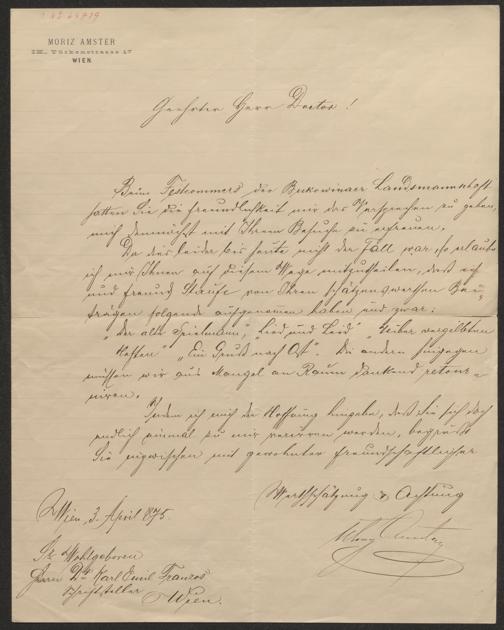 MORIZ AMSTER
IX., Türkenstrasse 17
WIEN
Geehrter Herr Doctor!
Beim Festcommers der Bukowinaer Landsmannschaft
hatten Sie die Freundlichkeit mir das Versprechen zu geben,
mich demnächst mit Ihrem Besuche zu erfreuen.
Da dies leider bis heute nicht der Fall war, so erlaube
ich mir Ihnen auf diesem Wege mitzutheilen, daß ich
und Freund Staufe von Ihren schätzenswerthen Bei-
trägen folgende aufgenommen haben und zwar:
"Der alte Spielmann", "Lied und Leid", vergilbten
"Ein Gruß nach Ost". Die andern hingegen
müssen wir aus Mangel an Raum dankend retour-
niren.
Indem ich mich der Hoffnung hingebe, daß Sie sich doch
endlich einmal zu mir verirren werden, begrüßt
Sie inzwischen mit gewohnter freundschaftlicher
Werthschätzung & Achtung
Moriz Amster
Wien, 3. April 1875.
Sr. Wohlgeboren
Herrn Dr. Karl Emil Franzos
Schriftsteller
Wien.